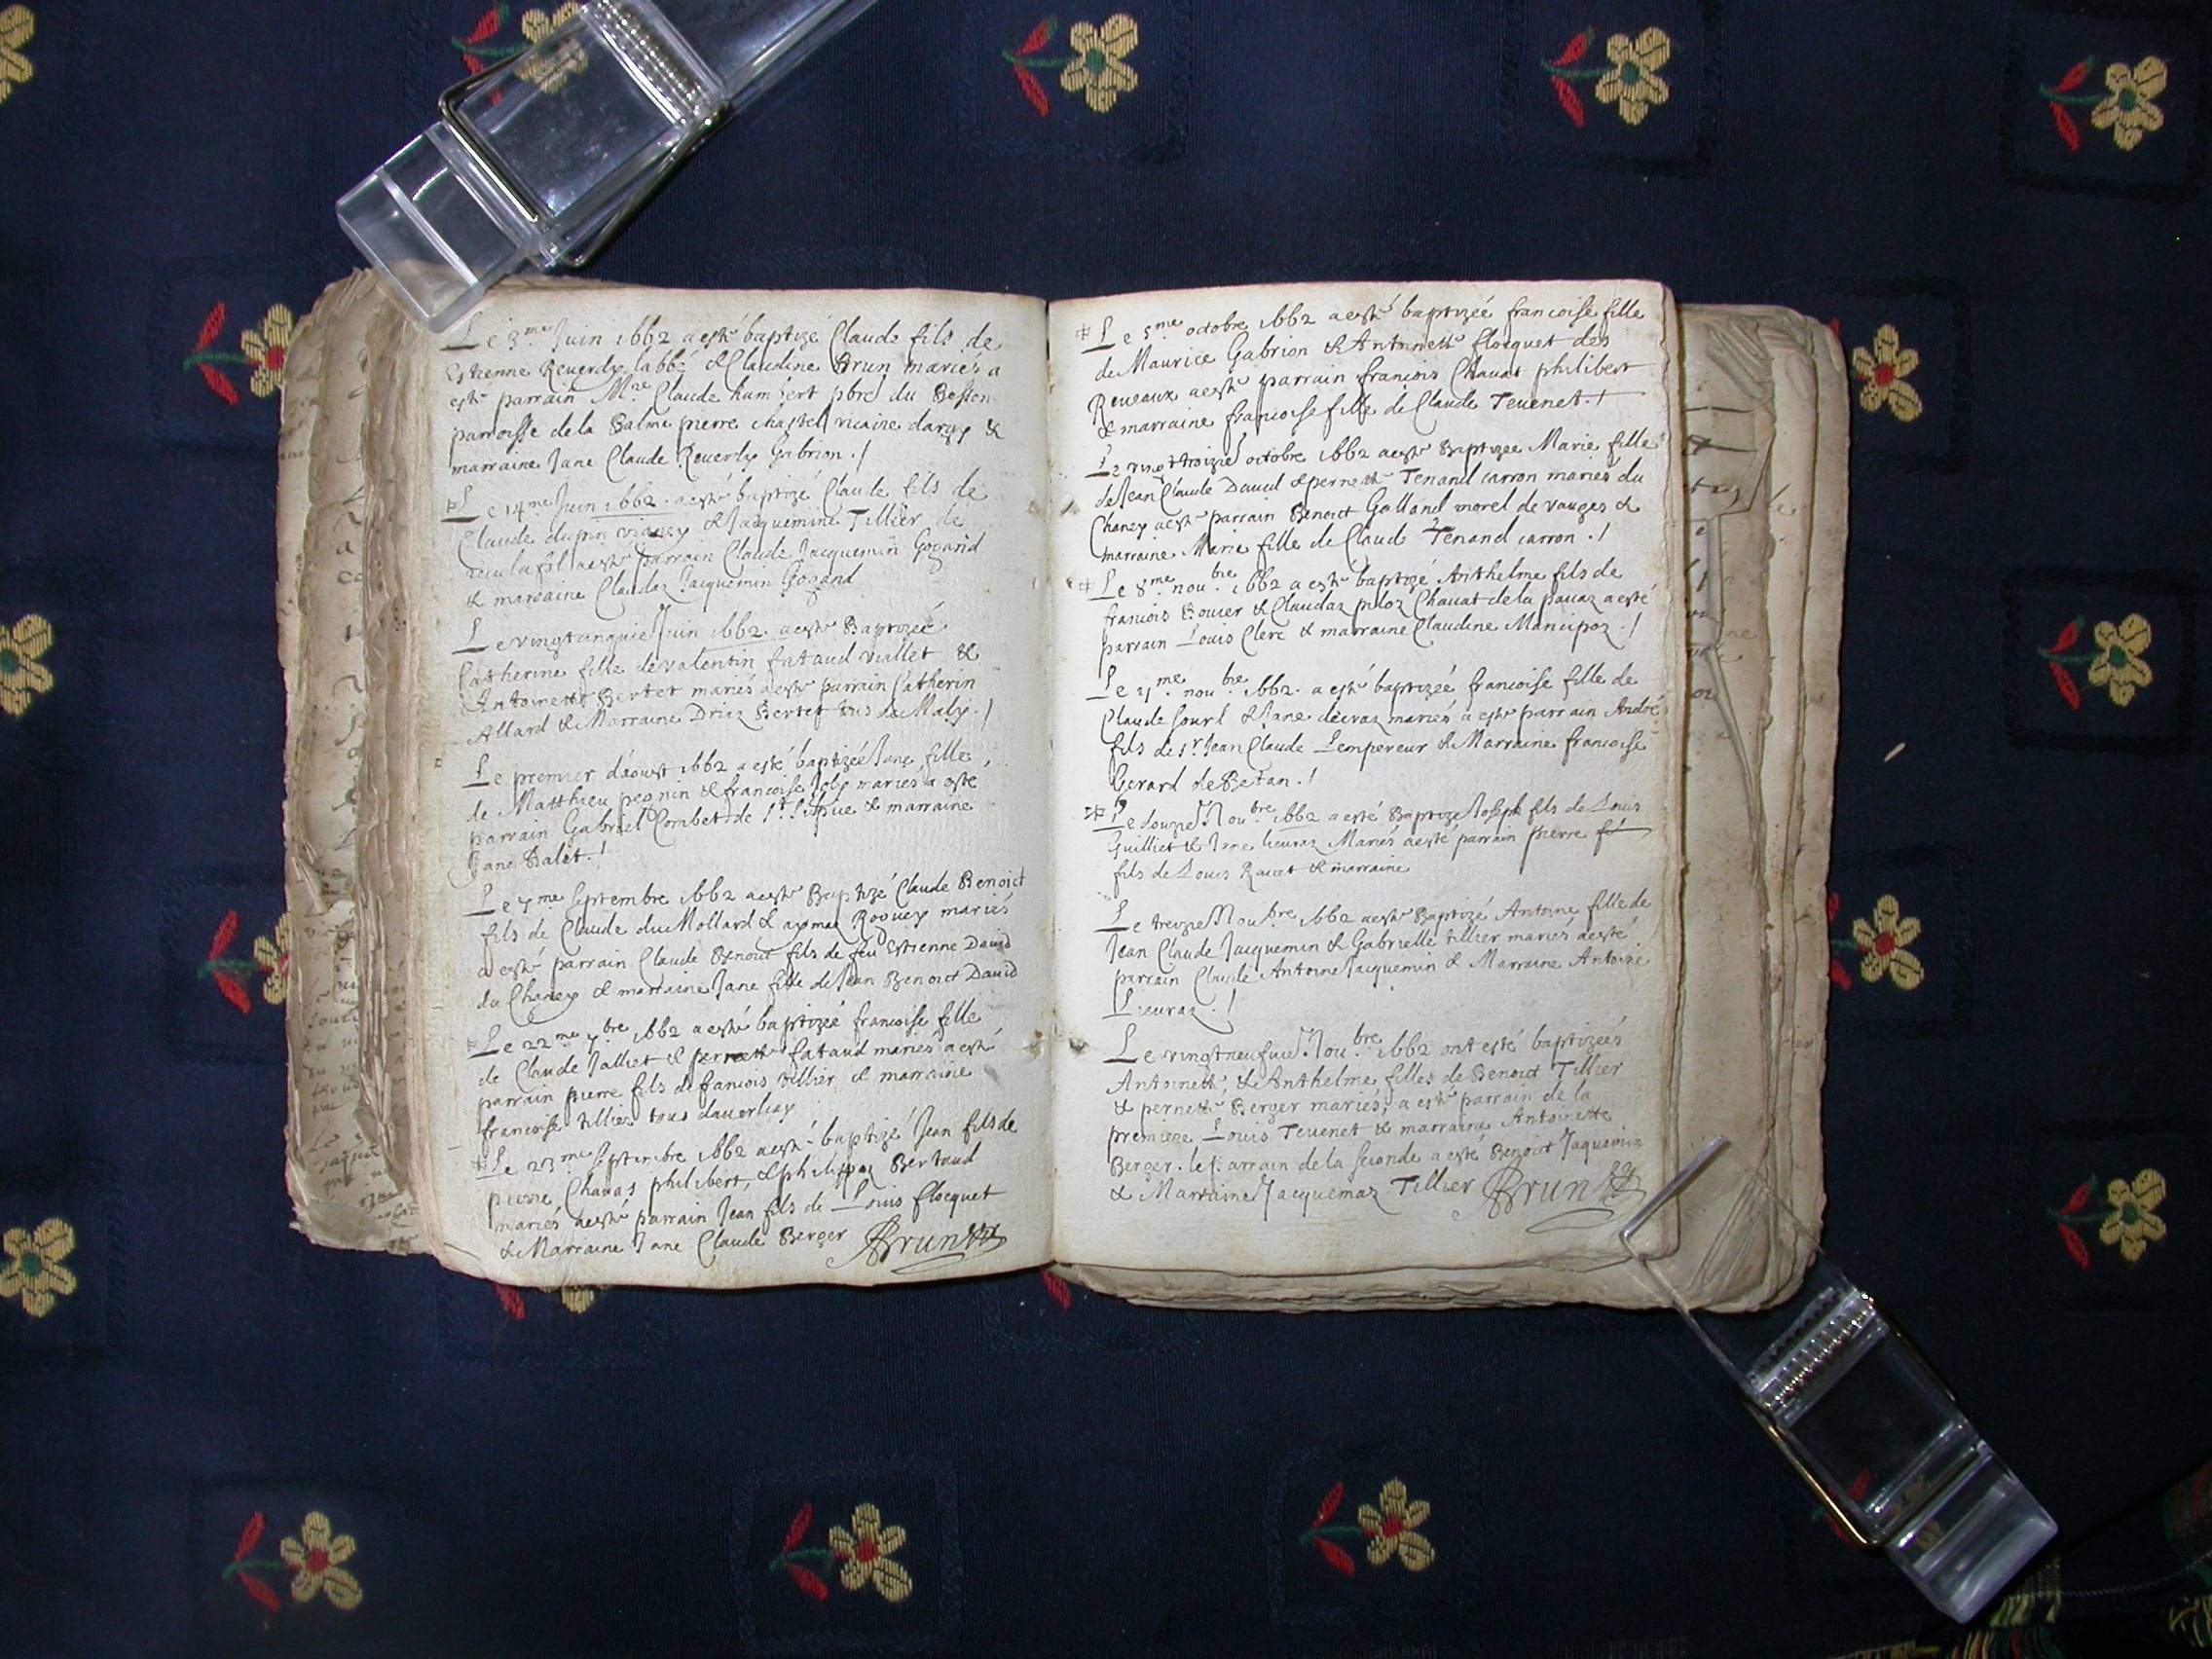 Le 3.me Juin 1662 a esté baptizé Claude fils de
Estienne Reuerdy labbé & Claudine Brun mariés a
esté parrain M.re Claude humbert pbre du
parroisse de la Balme pierre chastel vicaire &
marraine Jane Claude Reuerdy Gabrion ./
Le 14.me Juin 1662. a esté baptizé Claude fils de
Claude dupin & Jacquemine Tillier de
a esté parrain Claude Jacquemin Gogand
& marraine Claudaz Jacquemin Gogand
Le vingtcinquie Juin 1662. a esté Baptizée
Catherine fille de valentin fataud viallet &
Antoinette Bertet mariés a esté parrain Catherin
Allard & Marraine Driaz Bertet tous de Maly ./
Le premier daoust 1662 a esté baptizée Jane fille
de Matthieu pegnin & francoise Joly mariés a esté
parrain Gabriel Combet de & marraine
Jane Balet ./
Le 7.me septembre 1662 a esté Baptizé Claude Benoict
fils de Claude du Mollard & aymaz Roguey mariés
a esté parrain Claude Benoict fils de feu Estienne David
du Chaney & marraine Jane fille de Jean Benoict David
Le 22.me 7.bre 1662 a esté baptizée francoise fille
de Claude Jalliet & pernette fataud mariés a esté
parrain pierre fils de francois tillier & marraine
francoise tillier tous
Le 23.me septembre 1662 a esté baptizé Jean fils de
pierre Chavas philibert, & philippaz Bertaud
mariés a esté parrain Jean fils de Louis flocquet
& Marraine Jane Claude Berger Brun
Le 5.me octobre 1662 a esté baptizée francoise fille
de Maurice Gabrion & Antoinette flocquet des
Reueaux a esté parrain francois Chauat philibert
& marraine francoise fille de Claude Teuenet ./
Le vingttroizie octobre 1662 a esté Baptizée Marie fille
de Jean Claude Dauid & pernette Tenand carron mariés du
Chaney a esté parrain Benoict Galland morel de vauges &
marraine Marie fille de Claude Tenand carron ./
Le 8.me nou.bre 1662 a esté baptizé Anthelme fils de
francois Bouier & Claudaz piloz Chauat de la pauaz a esté
parrain Louis Clerc & marraine Claudine Mancipoz ./
Le nou.bre 1662. a esté baptizée francoise fille de
Claude & Jane mariés a esté parrain André
fils de s.r Jean Claude Lempereur & Marraine francoise
Gerard de Bettan ./
Le douzie Nou.bre 1662 a esté Baptizé Joseph fils de Louis
Guilliet & Jane lieuraz Mariés a esté parrain pierre
fils de Louis Rauet & marraine
Le treizie Nou.bre 1662 a esté Baptizé Antoine fille de
Jean Claude Jacquemin & Gabrielle tillier mariés a esté
parrain Claude Antoine Jacquemin & Marraine Antoine
Lieuraz ./
Le vingtneufuie Nou.bre 1662 ont esté baptizées
Antoinette, & Anthelme filles de Benoict Tillier
& pernette Berger mariés, a esté parrain de la
premiere Louis Teuenet & marraine Antoinette
Berger. le parrain de la seconde a esté Benoict Jaquemin
& Marraine Jacquemaz Tillier Brun